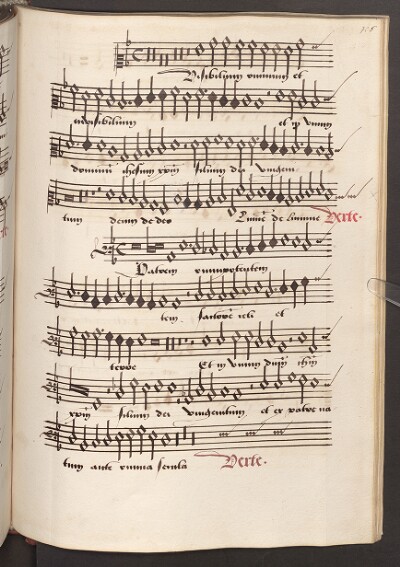 Visibilium omnium et
invisibilium et in unum
dominum ihesum xpm filium dei unigeni
tum deum de deo Lumen de lumine Verte.
Patrem omnipotentem
tem factorem celi et
terre Et in unum dnm ihm
xpm filium dei unigenitum et ex patre na
tum ante omnia secula Verte.